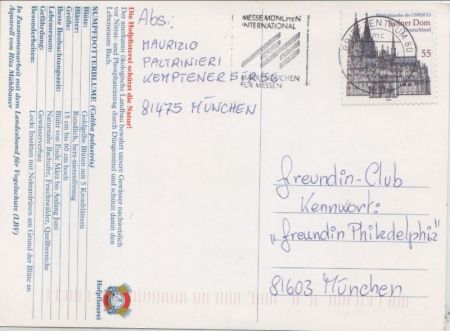 Die Hofpfisterei schützt die Natur!
Der anerkannt ökologische Landbau bewahrt unsere Gewässer nachweislich
vor Nitrat- und Phosphateintrag durch Düngemittel und schützt damit den
Lebensraum Bach.
SUMPFDOTTERBLUME (Caltha palustris)
Blüten: Goldgelbe Blüten mit 5 Kronblättern
Blätter: Rundlich, herz-nierenförmig
Größe: 15 cm bis 60 cm hoch
Beste Beobachtungszeit: Blüht von Ende März bis Anfang Juni
Lebensraum: Naturnahe Bachufer, Feuchtwälder, Quellbereiche
Gefährdung: Gewässerverbau
Besonderheiten: Lockt Insekten mit Nektardrüsen am Grund der Blüte an
In Zusammenarbeit mit dem Landesbund für Vogelschutz (LBV)
Aquarell von Rita Mühlbauer
Hofpfisterei
Abs:
MAURIZIO
PALTRINIERI
KEMPTENER
81475 MÜNCHEN
MESSE MÜNCHEN
INTERNATIONAL
MÜNCHEN
FÜR MESSEN
BRIEFZENTRUM 80
mc
der UNESCO
Kölner Dom
Deutschland
55
Freundin-Club
Kennwort:
"Freundin Philadelphia"
81603 München